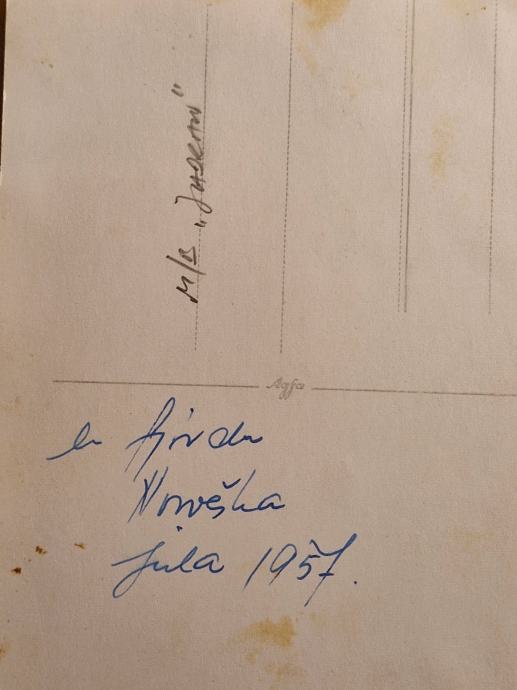 M/B „JADRAN"
Agfa
u fjordu
Norveška
jula 1957.